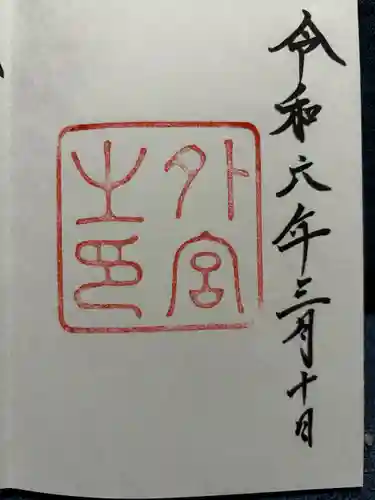 令和六年三月十日
外宮之印